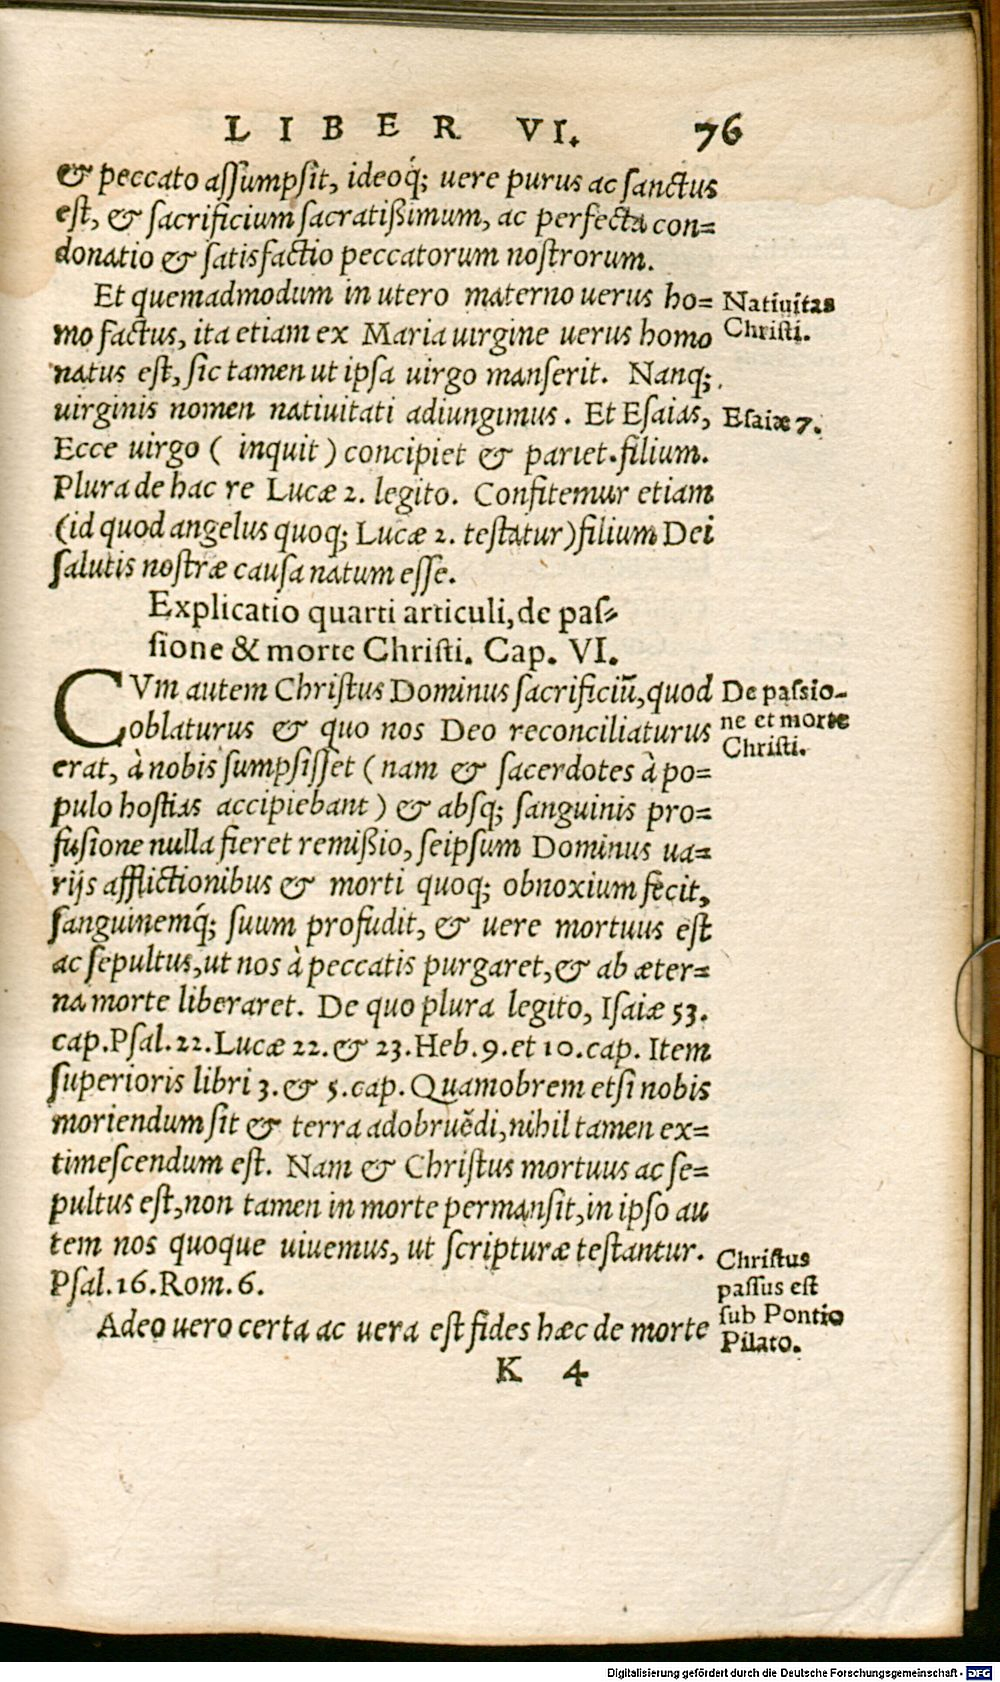 LIBER VI. 76
& peccato aſſumpſit, ideoq́; uere purus ac ſanctus
eſt, & ſacrificium ſacratißimum, ac perfecta con=
donatio & ſatisfactio peccatorum noſtrorum.
Et quemadmodum in utero materno uerus ho=
mo factus, ita etiam ex Maria uirgine uerus homo
natus eſt, ſic tamen ut ipſa uirgo manſerit. Nanq;
uirginis nomen natiuitati adiungimus. Et Eſaias,
Ecce uirgo ( inquit ) concipiet & pariet filium.
Plura de hac re Lucæ 2. legito. Confitemur etiam
(id quod angelus quoq; Lucæ 2. teſtatur) filium Dei
ſalutis noſtræ cauſa natum eſſe.
Natiuitas
Chriſti.
Eſaiæ 7.
Explicatio quarti articuli, de paſ-
ſione & morte Chriſti. Cap. VI.
CVm autem Chriſtus Dominus ſacrificiū, quod
oblaturus & quo nos Deo reconciliaturus
erat, à nobis ſumpſiſſet ( nam & ſacerdotes à po=
pulo hoſtias accipiebant ) & absq; ſanguinis pro=
fuſione nulla fieret remißio, ſeipſum Dominus ua=
rijs afflictionibus & morti quoq; obnoxium fecit,
ſanguinemq́; ſuum profudit, & uere mortuus eſt
ac ſepultus, ut nos à peccatis purgaret, & ab æter=
na morte liberaret. De quo plura legito, Iſaiæ 53.
cap. Pſal. 22. Lucæ 22. & 23. Heb. 9. et 10. cap. Item
ſuperioris libri 3. & 5. cap. Quamobrem etſi nobis
moriendum ſit & terra adobruēdi, nihil tamen ex=
timeſcendum eſt. Nam & Chriſtus mortuus ac ſe=
pultus eſt, non tamen in morte permanſit, in ipſo au
tem nos quoque uiuemus, ut ſcripturæ teſtantur.
Pſal. 16. Rom. 6.
Adeo uero certa ac uera eſt fides hæc de morte
De paſsio-
ne et morte
Chriſti.
Chriſtus
paſſus eſt
ſub Pontio
Pilato.
K 4
Digitalisierung gefördert durch die Deutsche Forschungsgemeinschaft - DFG